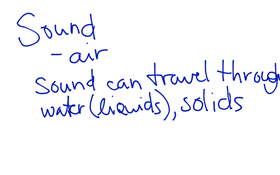 Sound
- air
Sound can travel through
water (liquids), solids